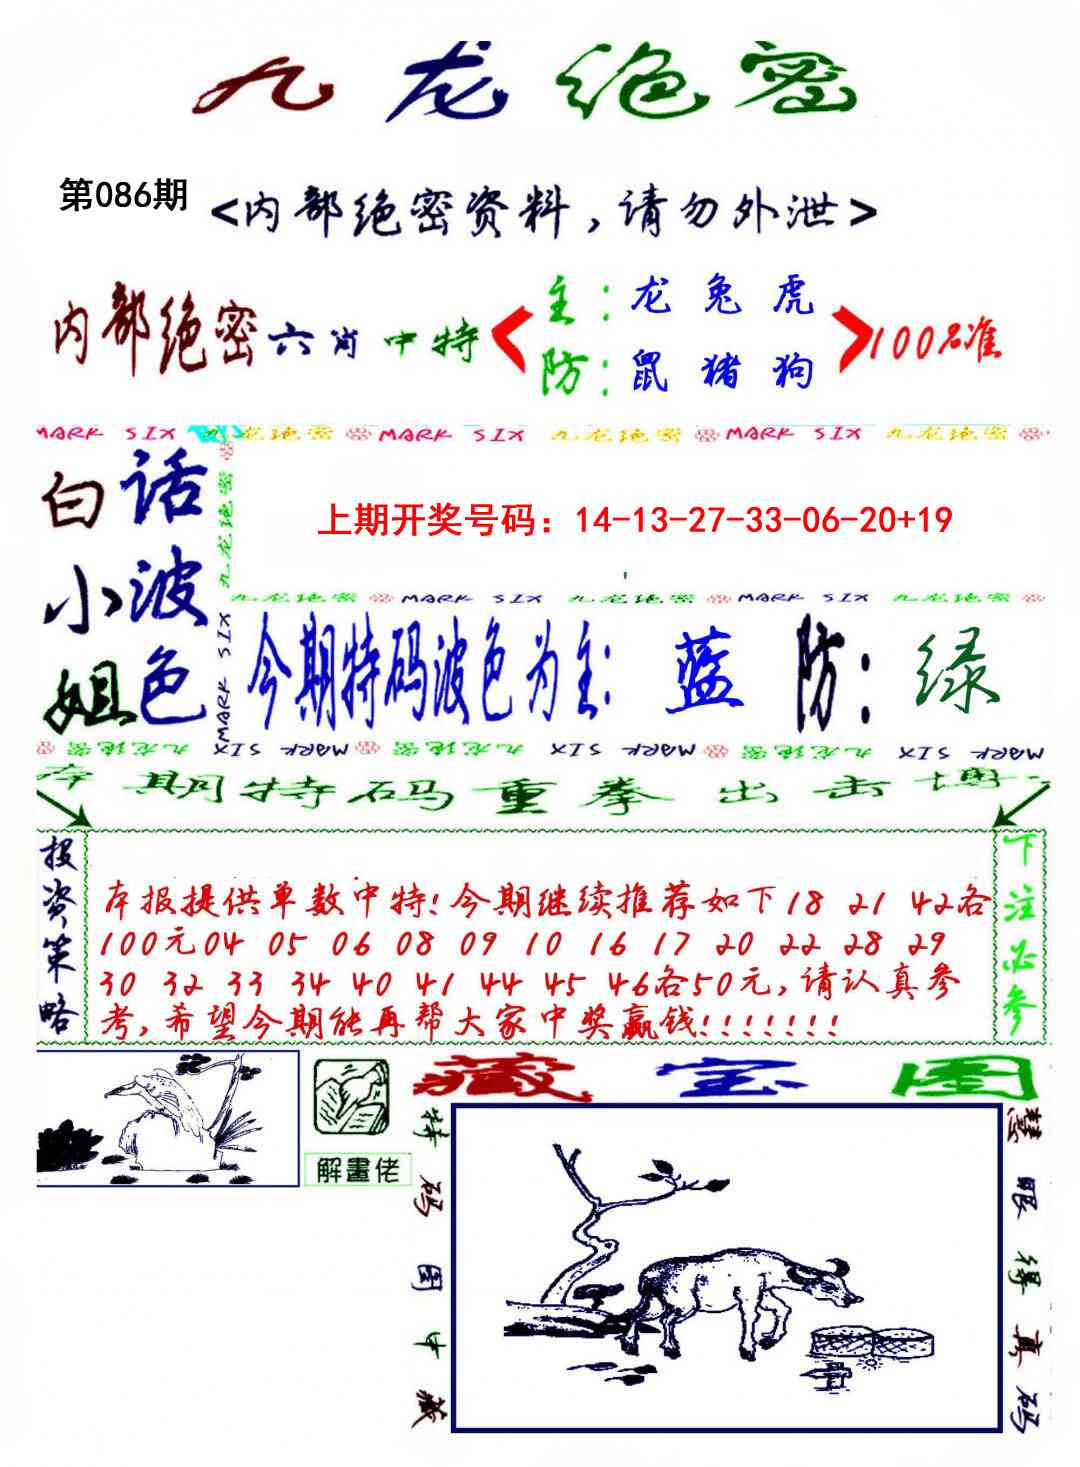 九龙绝密
第086期
<内部绝密资料,请勿外泄>
内部绝密六肖中特
主:龙 兔 虎
防:鼠 猪 狗
100%准
MARK SIX 九龙绝密 MARK SIX 九龙绝密 MARK SIX 九龙绝密
白话
小波
姐色
九龙绝密
MARK SIX
上期开奖号码：14-13-27-33-06-20+19
九龙绝密 MARK SIX 九龙绝密 MARK SIX 九龙绝密
今期特码波色为主:蓝 防:绿
九龙绝密 MARK SIX 九龙绝密 MARK SIX 九龙绝密 MARK SIX
本期特码重拳出击博
投资策略
本报提供单数中特!今期继续推荐如下18 21 42各
100元04 05 06 08 09 10 16 17 20 22 28 29
30 32 33 34 40 41 44 45 46各50元,请认真参
考,希望今期能再帮大家中奖赢钱!!!!!!!
下注必参
解畫佬
藏宝图
特码图中藏
慧眼得真码